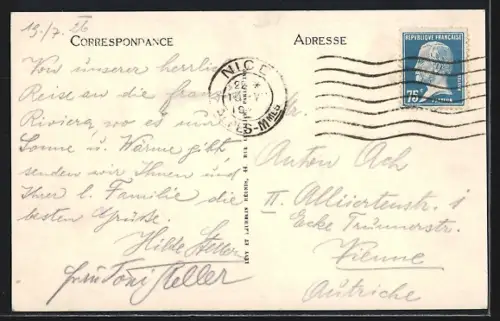 13./7. 26
CORRESPONDANCE
Von unserer herrlichen
Reise an die franz.
Riviera, wo es nur
Sonne u. Wärme gibt,
senden wir Ihnen und
Ihrer l. Familie die
besten Grüße.
Hilde Steller
Frau Toni Steller
NICE
LÉVY ET NEURDEIN RÉUNIS, 44, RUE
ADRESSE
RÉPUBLIQUE FRANÇAISE
75c
POSTES
Anton Ach
II. Alliiertenstr. 1
Ecke Trunnerstr.
Vienne
Autriche